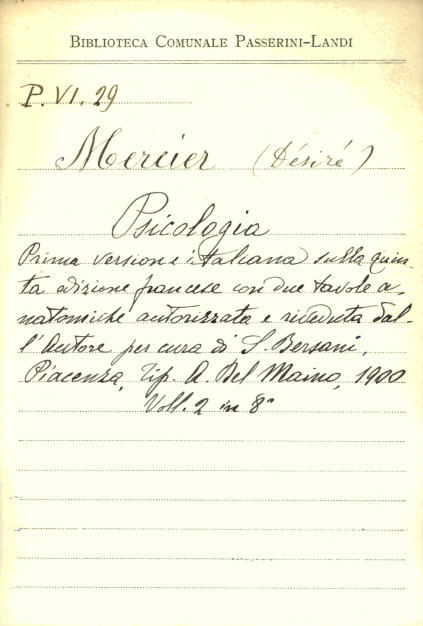 BIBLIOTECA COMUNALE PASSERINI-LANDI
P. VI. 29
Mercier (Désiré)
Psicologia
Prima versione italiana sulla quin-
ta edizione francese con due tavole a-
natomiche autorizzata e riveduta dal-
l'Autore per cura di S. Bersani.
Piacenza, Tip. A. Del Maino, 1900
Voll. 2 in 8°